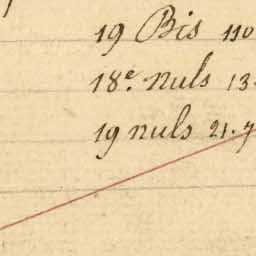 19 Bis 110
18e. nuls 13.
19 nuls 21.7